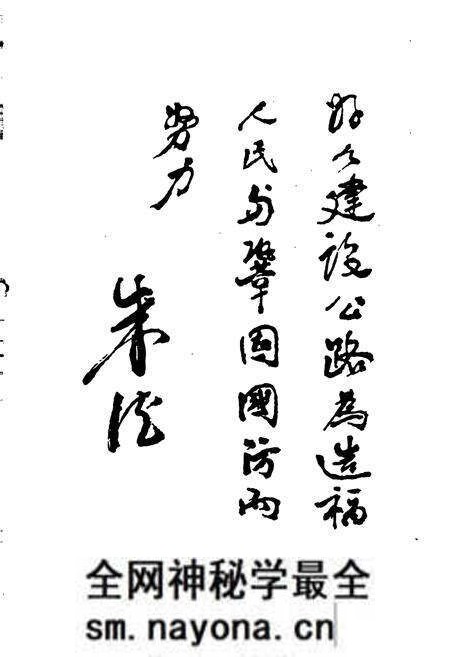 好々建设公路為造福
人民与鞏固國防而
努力
朱德
全网神秘学最全
sm.nayona.cn